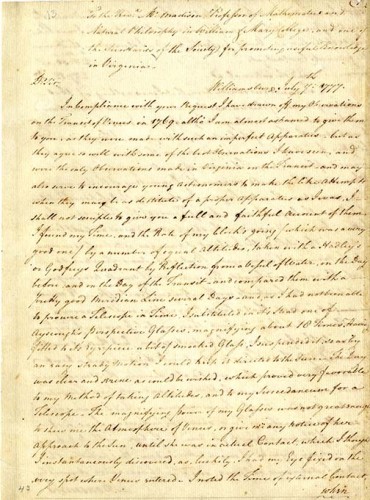 To the Revd. Mr. Madison Professor of Mathematics and
Natural Philosophy in William & Mary College, and one of
the Secretaries of the Society for promoting useful Knowledge
in Virginia.
Dr. Sir
Williamsburg July 7th 1777.
In compliance with your Request I have drawn off my Observations
on the Transit of Venus in 1769. altho' I am almost ashamed to give them
to you, as they were made with such an imperfect Apparatus; but as
they agree so well with some of the best Observations I have seen, and
were the only Observations made in Virginia on the Transit; and may
also serve to encourage young Astronomers to make the like Attempts
when they may be as destitute of a proper Apparatus as I was, I
shall not scruple to give you a full and faithful Account of them.
I found my Time, and the Rate of my Clock's going (which was a very
good one) by a number of equal Altitudes, taken with a Hadley's
or Godfrey's Quadrant by Reflection from a Bowl of Water, on the Day
before, and on the Day of the Transit, and compared them with a
pretty good Meridian Line several Days; and, as I had not been able
to procure a Telescope in Time, I substituted in its stead one of
Ayscough's Perspective Glasses, magnifying about 10 Times, having
fitted to its Eye piece a bit of smoked Glass. I suspended it so as by
an easy steady motion I could keep it directed to the Sun. The Day
was clear and serene as could be wished, which proved very favorable
to my Method of taking Altitudes, and to my Succedaneum for a
Telescope. The magnifying Power of my Glasses was not great enough
to shew me the Atmosphere of Venus, or give me any notice of her
Approach to the Sun, until she was in actual Contact, which I think
I instantaneously discovered, as, luckily, I had my Eye fixed on the
very spot where Venus entered. I noted the Time of external Contact,
which
42